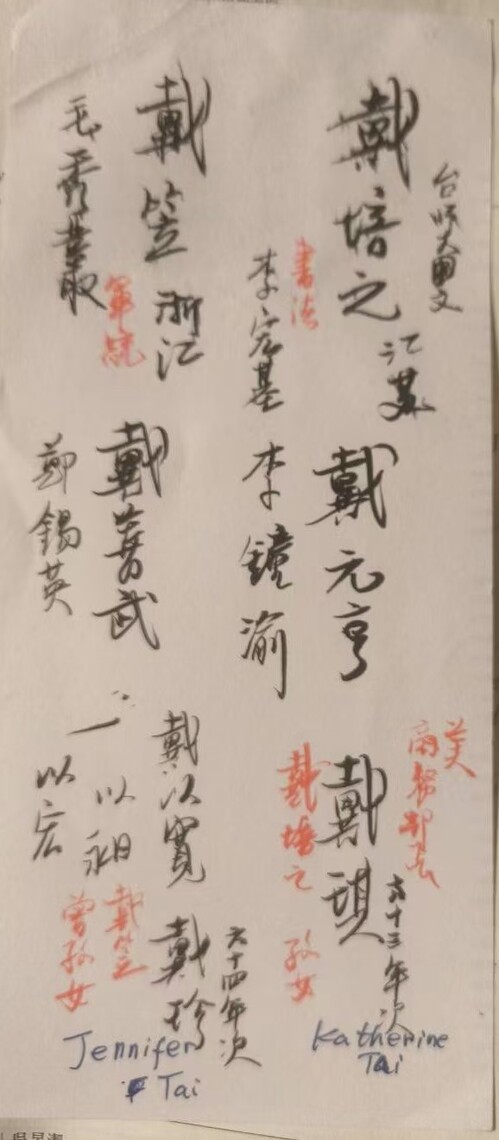 台師大國文
戴培之
江蘇
書法
李宏基
戴笠
浙江
軍統
毛秀叢
戴元亨
李鏡渝
戴善武
鄭錫英
美
商務部長
戴琪
六十三年次
戴培之
孫女
Katherine
Tai
戴以寬
以昶
以宏
戴珍
六十四年次
戴笠
曾孫女
Jennifer
Tai